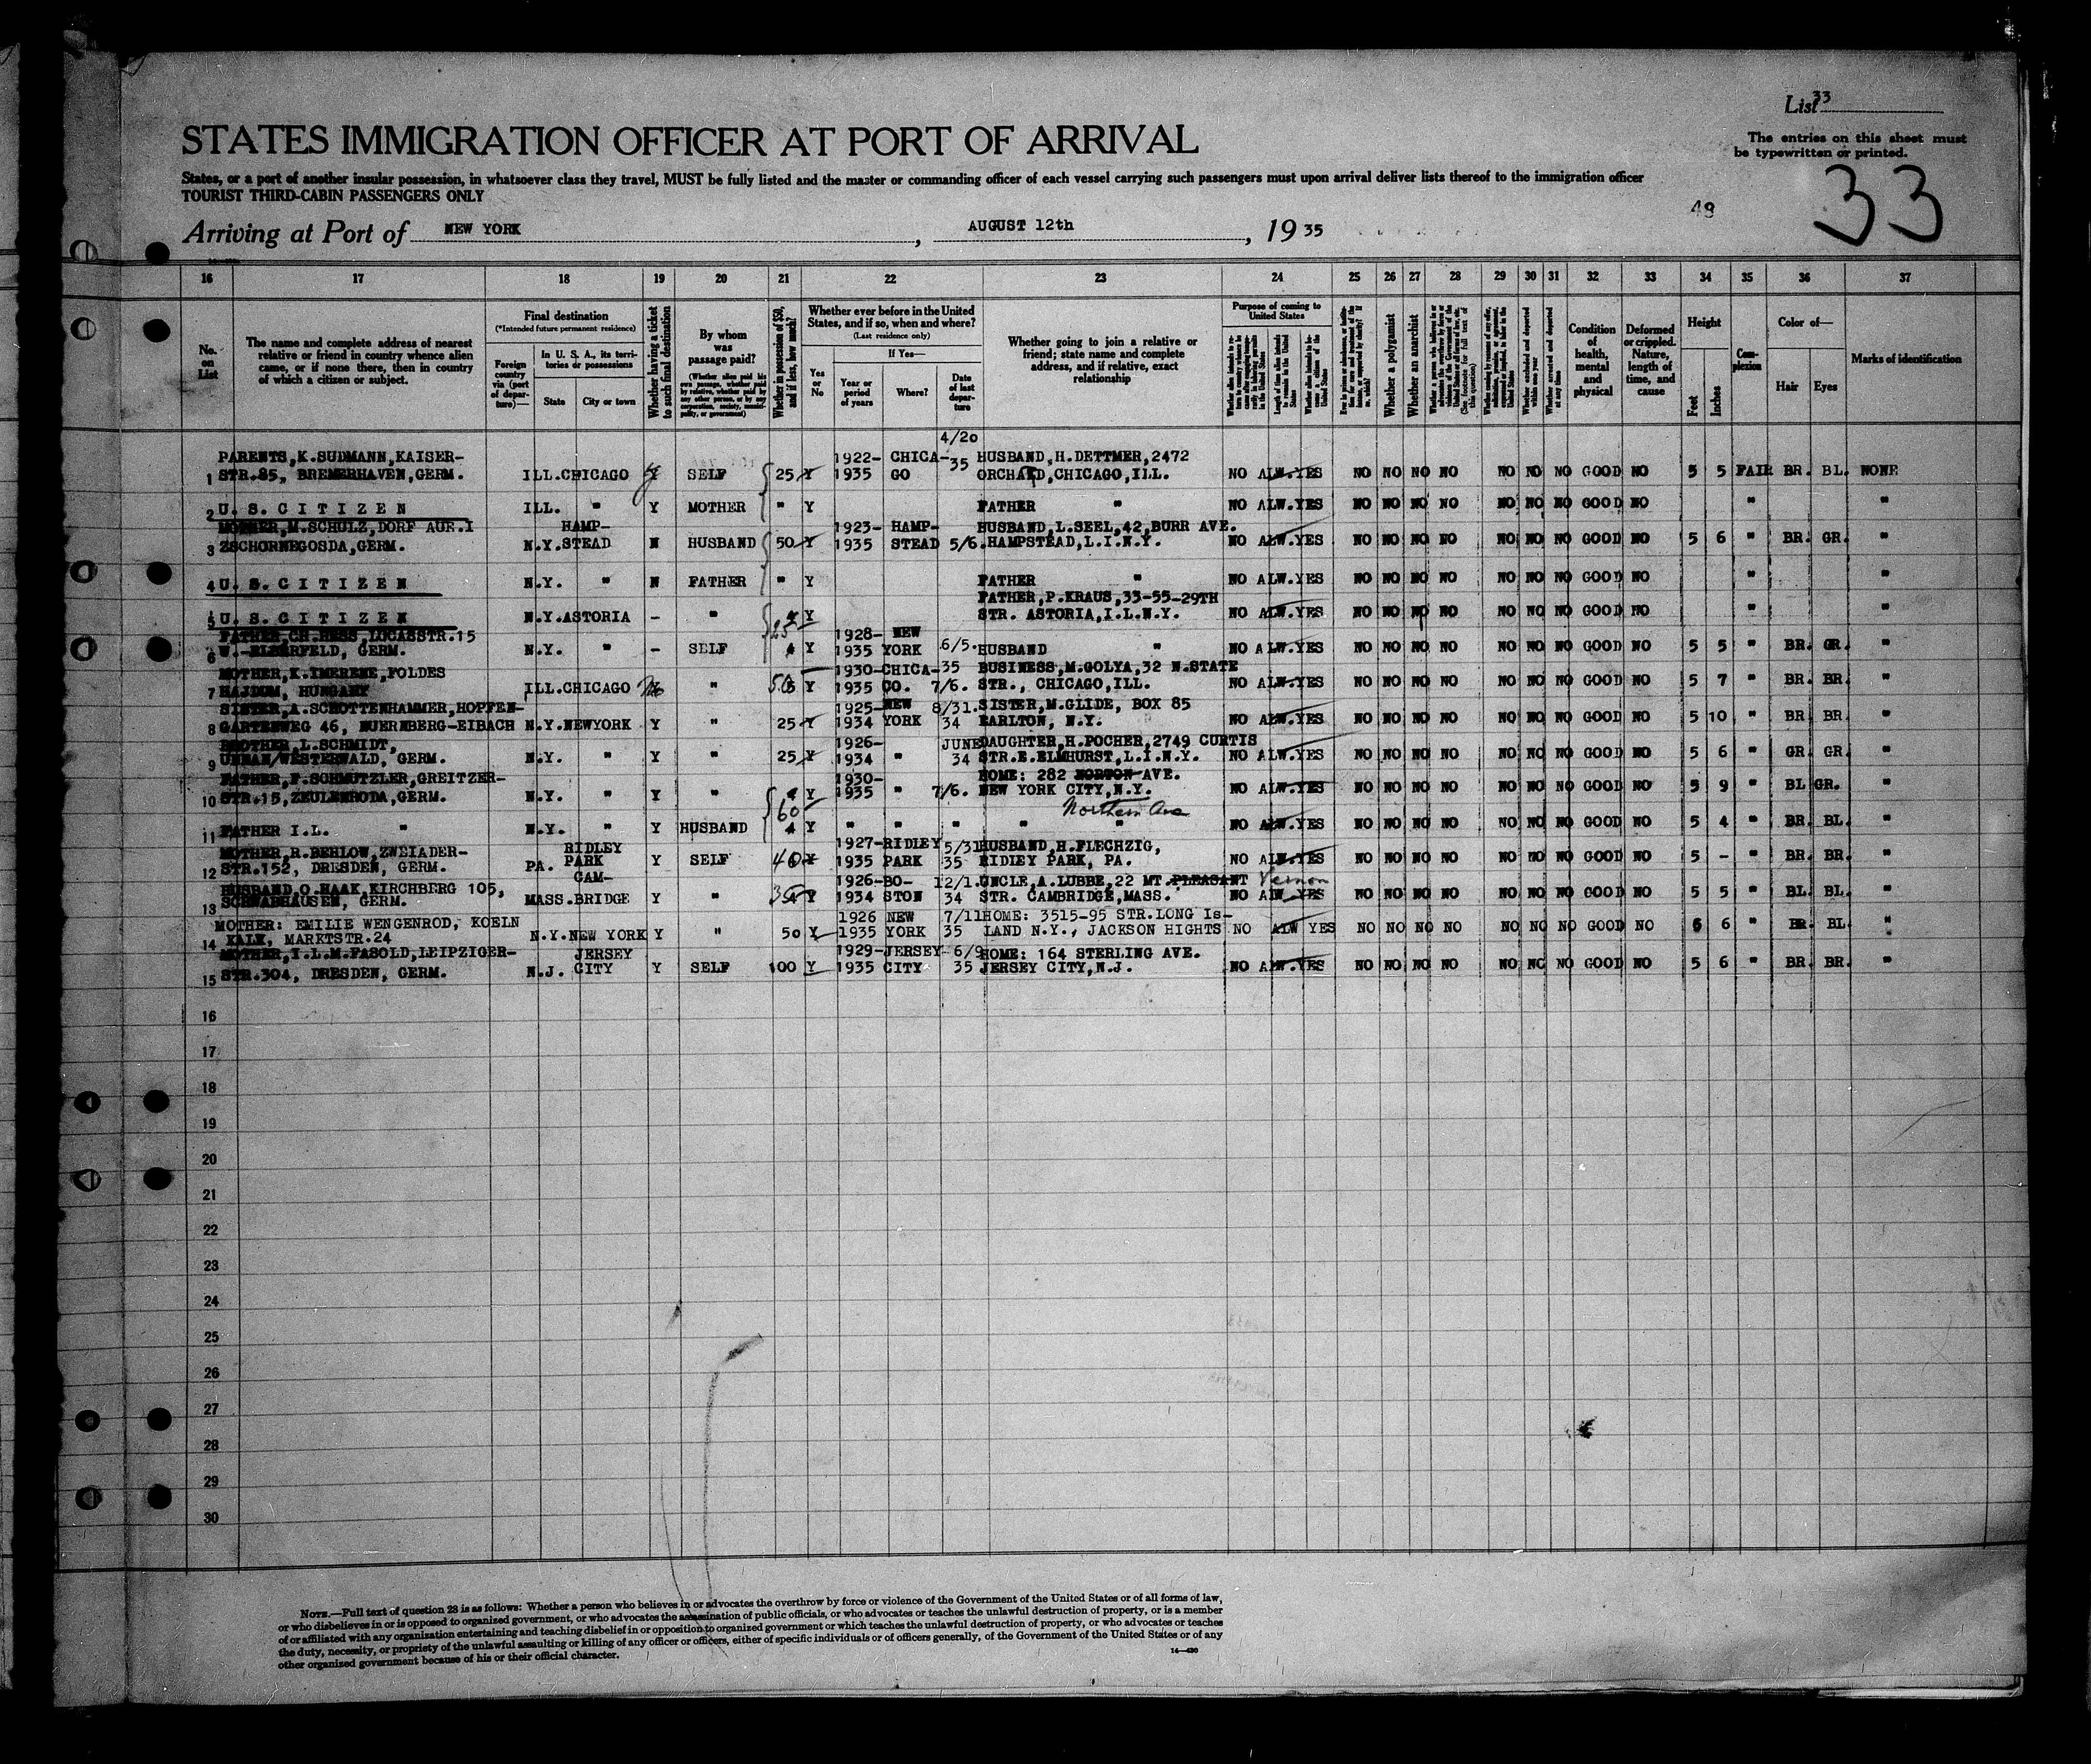 List 33
STATES IMMIGRATION OFFICER AT PORT OF ARRIVAL
The entries on this sheet must
be typewritten or printed.
States, or a port of another insular possession, in whatsoever class they travel, MUST be fully listed and the master or commanding officer of each vessel carrying such passengers must upon arrival deliver lists thereof to the immigration officer
TOURIST THIRD-CABIN PASSENGERS ONLY
33
Arriving at Port of NEW YORK, AUGUST 12th, 19 35
16 17 18 19 20 21 22 23 24 25 26 27 28 29 30 31 32 33 34 35 36 37
No. on List
The name and complete address of nearest
relative or friend in country whence alien
came, or if none there, then in country
of which a citizen or subject.
Final destination
(*Intended future permanent residence)
Foreign country via (port of departure)—
In U. S. A., its territories or possessions
State
City or town
Whether having a ticket to such final destination
By whom was passage paid?
Whether in possession of $50, and if less, how much?
Whether ever before in the United
States, and if so, when and where?
(Last residence only)
Yes or No
If Yes—
Year or period of years
Where?
Date of last departure
Whether going to join a relative or
friend; state name and complete
address, and if relative, exact
relationship
Purpose of coming to United States
Whether a polygamist
Whether an anarchist
Condition of health, mental and physical
Deformed or crippled. Nature, length of time, and cause
Height
Feet
Inches
Complexion
Color of—
Hair
Eyes
Marks of identification
4/20
PARENTS,K.SUDMANN,KAISER- 1922- CHICA- 35 HUSBAND,H.DETTMER,2472
1 STR.85, BREMERHAVEN,GERM. ILL.CHICAGO Y SELF 25 Y 1935 GO ORCHARD,CHICAGO,ILL. NO ALW.YES NO NO NO NO NO NO NO GOOD NO 5 5 FAIR BR. BL. NONE
2 U. S. C I T I Z E N ILL. " Y MOTHER " Y FATHER " NO ALW.YES NO NO NO NO NO NO NO GOOD NO " "
MOTHER,M.SCHULZ,DORF AUE.I HAMP- 1923- HAMP- HUSBAND,L.SEEL,42,BURR AVE.
3 ZSCHORNEGOSDA,GERM. N.Y.STEAD N HUSBAND 50 Y 1935 STEAD 5/6. HAMPSTEAD,L.I.N.Y. NO ALW.YES NO NO NO NO NO NO NO GOOD NO 5 6 " BR. GR. "
4 U. S. C I T I Z E N N.Y. " N FATHER " Y FATHER " NO ALW.YES NO NO NO NO NO NO NO GOOD NO " "
FATHER,P.KRAUS,33-55-29TH
5 U. S. C I T I Z E N N.Y.ASTORIA - " Y STR. ASTORIA,I.L.N.Y. NO ALW.YES NO NO NO NO NO NO NO GOOD NO " "
FATHER,CH.HESS,LUCASSTR.15 25 1928- NEW
6 W.-ELBERFELD, GERM. N.Y. " - SELF Y 1935 YORK 6/5. HUSBAND " NO ALW.YES NO NO NO NO NO NO NO GOOD NO 5 5 " BR. GR. "
MOTHER,K.IMERENE,FOLDES 1930-CHICA- 35 BUSINESS,M.GOLYA,32 N.STATE
7 HAJDUM, HUNGARY ILL.CHICAGO No " 50 Y 1935 GO. 7/6. STR., CHICAGO,ILL. NO ALW.YES NO NO NO NO NO NO NO GOOD NO 5 7 " BR. BR. "
SISTER,A.SCHOTTENHAMMER,HOPFEN- 1925- NEW 8/31. SISTER,M.GLIDE, BOX 85
8 GARTENWEG 46, NUERNBERG-EIBACH N.Y.NEWYORK Y " 25 Y 1934 YORK 34 EARLTON, N.Y. NO ALW.YES NO NO NO NO NO NO NO GOOD NO 5 10 " BR BR. "
BROTHER,L.SCHMIDT, 1926- JUNE DAUGHTER,H.POCHER,2749 CURTIS
9 UNNAN/WESTERWALD, GERM. N.Y. " Y " 25 Y 1934 " 34 STR.E.ELMHURST,L.I.N.Y. NO ALW.YES NO NO NO NO NO NO NO GOOD NO 5 6 " GR. GR. "
FATHER,F.SCHMUTZLER,GREITZER- 1930- HOME: 282 NORTON AVE.
10 STR.15,ZEULENRODA,GERM. N.Y. " Y " Y 1935 " 7/6. NEW YORK CITY,N.Y. NO ALW.YES NO NO NO NO NO NO NO GOOD NO 5 9 " BL GR. "
60 Northern Ave
11 FATHER I.L. " N.Y. " Y HUSBAND Y " " " " " NO ALW.YES NO NO NO NO NO NO NO GOOD NO 5 4 " BR. BL. "
MOTHER,R.BEHLOW,ZWEIADER- RIDLEY 1927-RIDLEY 5/31 HUSBAND,H.FLECHZIG,
12 STR.152, DRESDEN, GERM. PA. PARK Y SELF 40 Y 1935 PARK 35 RIDLEY PARK, PA. NO ALW.YES NO NO NO NO NO NO NO GOOD NO 5 - " BR. BR. "
HUSBAND,O.HAAK,KIRCHBERG 105, CAM- 1926-BO- 12/1. UNCLE,A.LUBBE,22 MT.PLEASANT Vernon
13 SCHWABHAUSEN, GERM. MASS.BRIDGE Y " 35 Y 1934 STON 34 STR. CAMBRIDGE,MASS. NO ALW.YES NO NO NO NO NO NO NO GOOD NO 5 5 " BL. BL. "
MOTHER: EMILIE WENGENROD, KOELN 1926 NEW 7/11 HOME: 3515-95 STR.LONG Is-
14 KALK, MARKTSTR.24 N.Y.NEW YORK Y " 50 Y 1935 YORK 35 LAND N.Y., JACKSON HIGHTS NO ALW YES NO NO NO NO NO NO NO GOOD NO 6 6 " BR. BL. "
MOTHER,I.L.M.FASOLD,LEIPZIGER- JERSEY 1929-JERSEY 6/9 HOME: 164 STERLING AVE.
15 STR.304, DRESDEN, GERM. N.J. CITY Y SELF 100 Y 1935 CITY 35 JERSEY CITY,N.J. NO ALW.YES NO NO NO NO NO NO NO GOOD NO 5 6 " BR. BR. "
16
17
18
19
20
21
22
23
24
25
26
27
28
29
30
NOTE.—Full text of question 28 is as follows: Whether a person who believes in or advocates the overthrow by force or violence of the Government of the United States or of all forms of law,
or who disbelieves in or is opposed to organized government, or who advocates the assassination of public officials, or who advocates or teaches the unlawful destruction of property, or is a member
of or affiliated with any organization entertaining and teaching disbelief in or opposition to organized government or which teaches the unlawful destruction of property, or who advocates or teaches
the duty, necessity, or propriety of the unlawful assaulting or killing of any officer or officers, either of specific individuals or of officers generally, of the Government of the United States or of any
other organized government because of his or their official character.